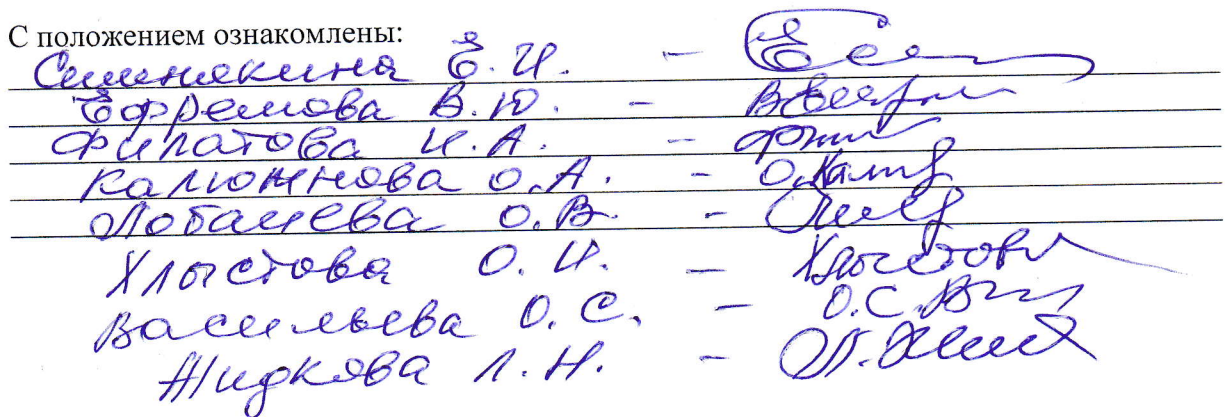 С положением ознакомлены:
Семенякина Е.И. -
Ефремова В.Ю. -
Филатова И.А. -
Калюжнова О.А. - О.Калюж
Лобачева О.В. -
Хлыстова О.И. - Хлыстова
Васильева О.С. - О.С.В
Жидкова Л.Н. - Л.Жид